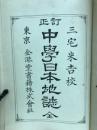 三宅米吉校
訂正
中學日本地誌 全
東京 金港堂書籍株式會社